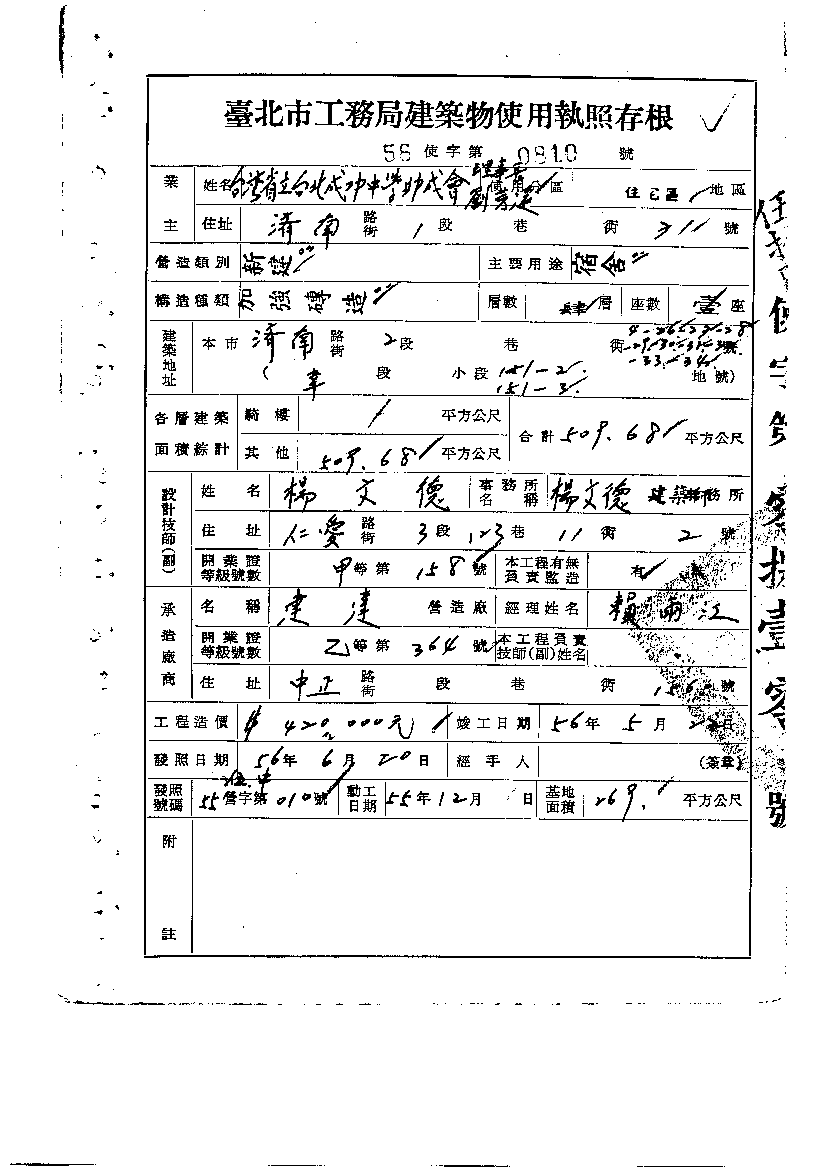 臺北市工務局建築物使用執照存根
56 使字第 0810 號
業主 姓名 台灣省立台北成功中學助成會 理事長 使用分區 住宅區 地區
住址 濟南 路街 1 段 巷 衖 311 號
營造類別 新建 主要用途 宿舍
構造種類 加強磚造 層數 肆 層 座數 壹 座
建築地址 本市 濟南 路街 2 段 巷 衖 號
( 幸 段 小段 151-2 151-3 地號)
各層建築面積綜計 騎樓 / 平方公尺 合計 509.68 平方公尺
其他 509.68 平方公尺
設計技師(副) 姓名 楊文德 事務所名稱 楊文德 建築師 務所
住址 仁愛 路街 3 段 123 巷 11 衖 2 號
開業證等級號數 甲 等第 158 號 本工程有無負責監造 有 無
承造廠商 名稱 建達 營造廠 經理姓名 賴 江
開業證等級號數 乙 等第 364 號 本工程負責技師(副)姓名
住址 中正 路街 段 巷 衖 號
工程造價 $ 420,000元 竣工日期 56 年 5 月 22 日
發照日期 56 年 6 月 20 日 經手人 (簽章)
發照號碼 55 營字第 010 號 動工日期 55 年 12 月 日 基地面積 269. 平方公尺
附註